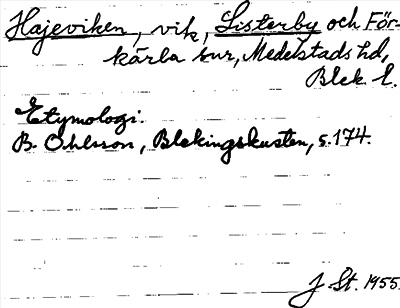 Hajeviken, vik, Listerby och För-
kärla snr, Medelstads hd,
Blek l.
Etymologi:
B. Ohlsson, Blekingskusten, s. 174.
J St. 1955.